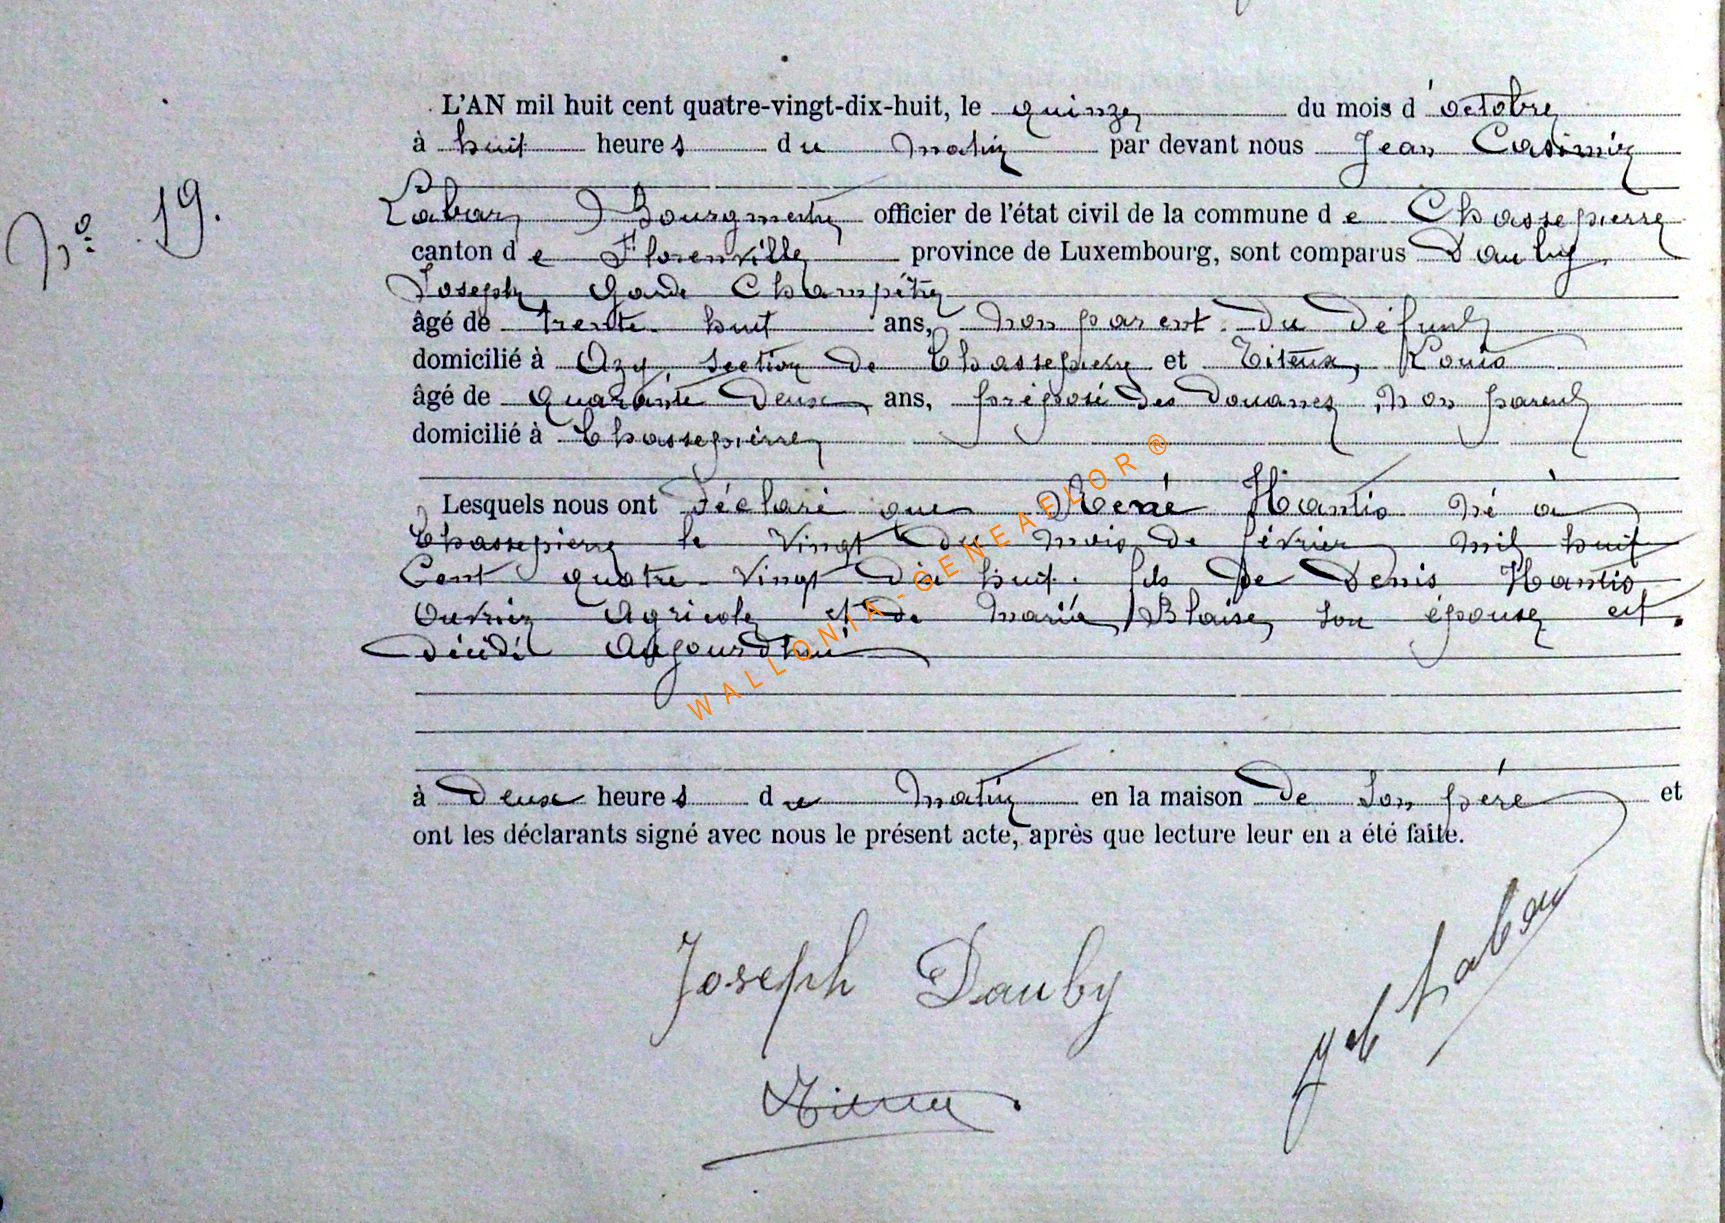 L'AN mil huit cent quatre-vingt-dix-huit, le quinze du mois d'octobre
à huit heures du matin par devant nous Jean Casimir
Nº 19.
Labar, Bourgmestre officier de l'état civil de la commune de Chassepierre
canton de Florenville province de Luxembourg, sont comparus Dauby,
Joseph Garde Champêtre
âgé de trente huit ans, non parent du défunt
domicilié à Azy, section de Chassepierre et Titeux, Louis
âgé de quarante deux ans, préposé des douanes, non parent
domicilié à Chassepierre
Lesquels nous ont déclaré que René Hantio né à
Chassepierre le vingt du mois de février mil huit
Cent quatre-vingt dix huit. fils de Denis Hantio
ouvrier Agricole et de Maria Blaise, son épouse est
décédé aujourd'hui
à deux heures du matin en la maison de son père et
ont les déclarants signé avec nous le présent acte, après que lecture leur en a été faite.
Joseph Dauby
Labar
Titeux
WALLONIA-GENEAFLOR ®